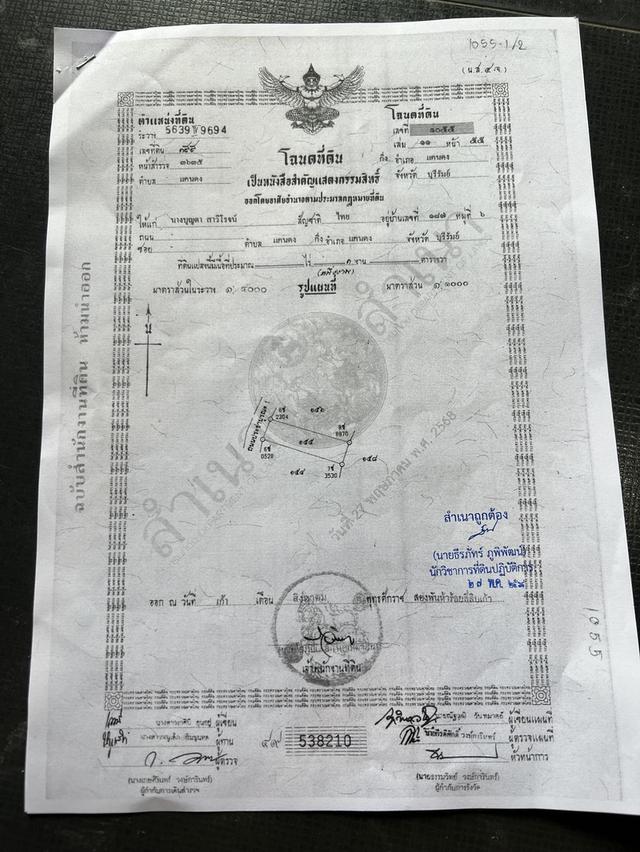 1055-1/2
(น.ส.๔ จ)
ตำแหน่งที่ดิน
ระวาง 5639 9694
เลขที่ดิน ๑๕๕
หน้าสำรวจ ๓๖๓๕
ตำบล แคนดง
โฉนดที่ดิน
เลขที่ ๑๐๕๕
เล่ม ๑๑ หน้า ๕๕
กิ่ง อำเภอ แคนดง
จังหวัด บุรีรัมย์
โฉนดที่ดิน
เป็นหนังสือสำคัญแสดงกรรมสิทธิ์
ออกโดยอาศัยอำนาจตามประมวลกฎหมายที่ดิน
ให้แก่ นางบุญตา สาวิโรจน์ สัญชาติ ไทย อยู่บ้านเลขที่ ๑๘๗ หมู่ที่ ๖
ถนน
ซอย ตำบล แคนดง กิ่ง อำเภอ แคนดง จังหวัด บุรีรัมย์
ที่ดินแปลงนี้มีเนื้อที่ประมาณ ไร่ ๓ งาน ตารางวา
มาตราส่วนในระวาง ๑:๔๐๐๐ รูปแผนที่ มาตราส่วน ๑:๑๐๐๐
น
ฉบับสำนักงานที่ดิน ห้ามนำออก
สำเนา
สำเนา
วันที่ 27 พฤษภาคม พ.ศ. 2568
2304
๑๕๖
8970
0528
๑๕๕
3530
๑๕๘
๑๕๔
สำเนาถูกต้อง
(นายธีรภัทร์ ภูพิพัฒน์)
นักวิชาการที่ดินปฏิบัติการ
๒๗ พ.ค. ๒๕๖๘
ออก ณ วันที่ เก้า เดือน สิงหาคม พุทธศักราช สองพันห้าร้อยสี่สิบเก้า
เจ้าพนักงานที่ดิน
1055
ผู้เขียน
ผู้ทาน
ผู้ตรวจ
๔๙ 538210
ผู้เขียนแผนที่
ผู้ตรวจแผนที่
หัวหน้าการ
ผู้กำกับการเดินสำรวจ
ผู้กำกับการรังวัด